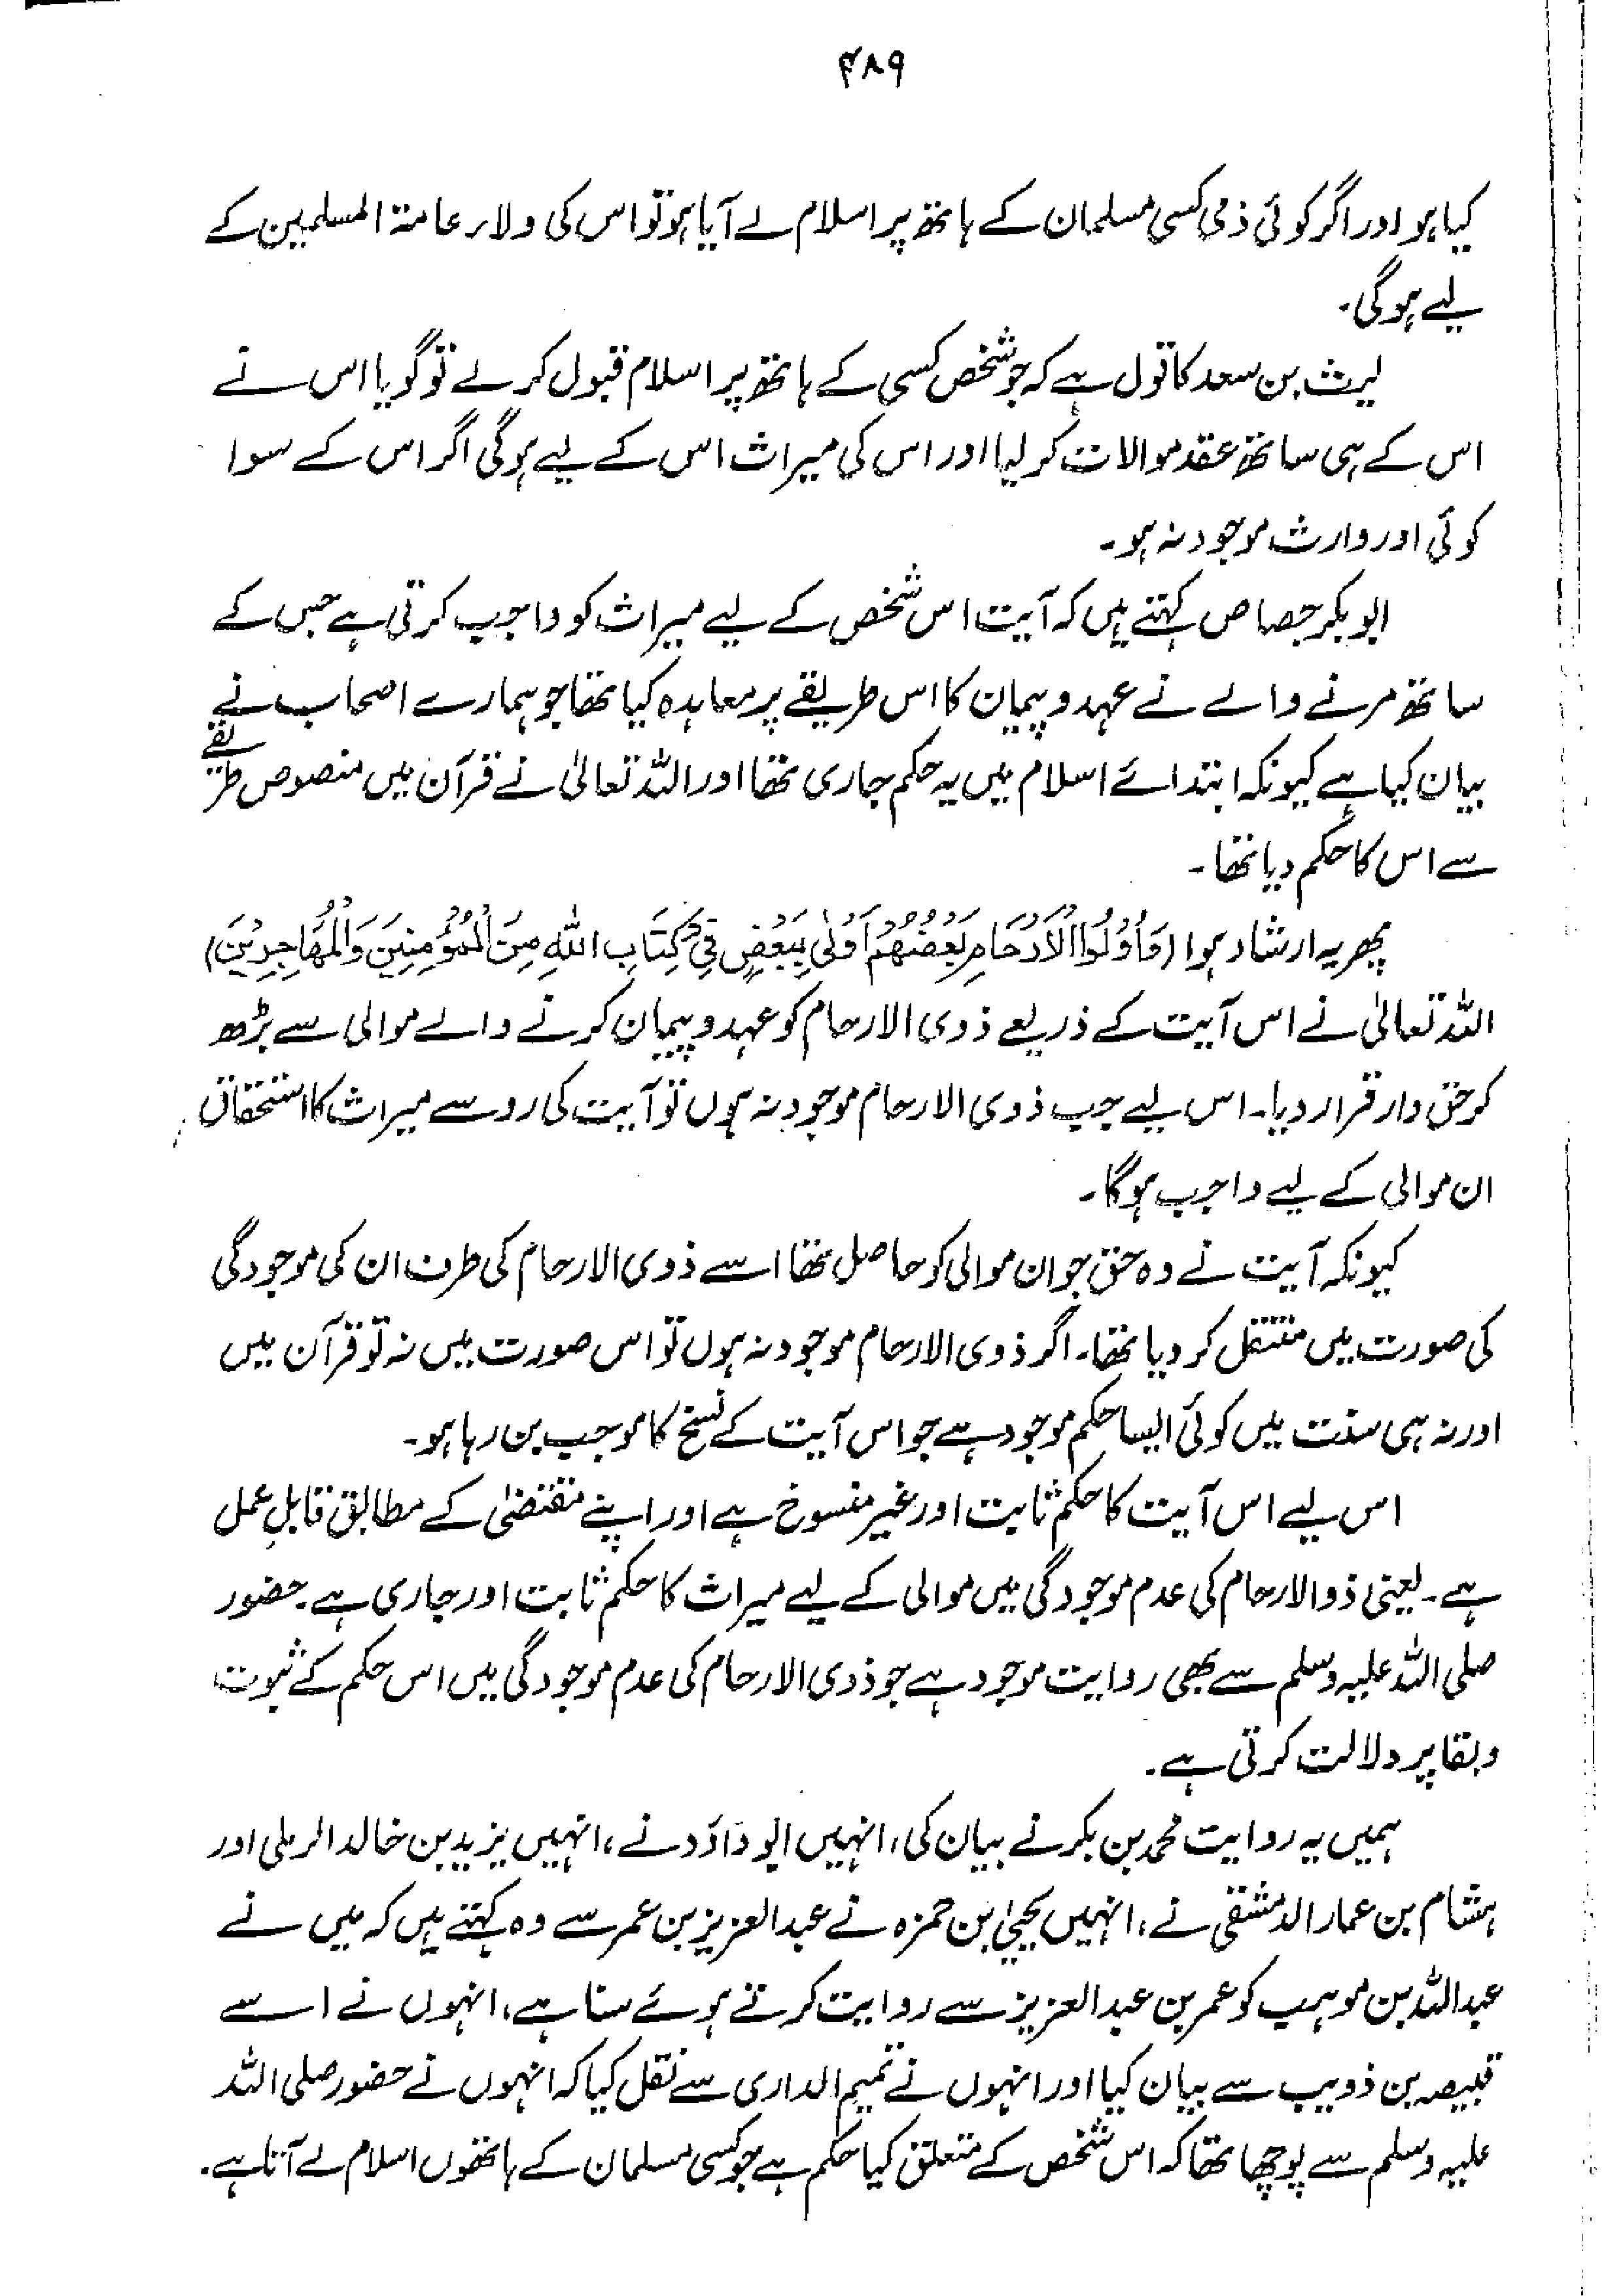 ۴۸۹
کیا ہو اور اگر کوئی ذمی کسی مسلمان کے ہاتھ پر اسلام لے آیا ہو تو اس کی ولاء عامۃ المسلمین کے
لیے ہوگی۔
لیث بن سعد کا قول ہے کہ جو شخص کسی کے ہاتھ پر اسلام قبول کر لے تو گویا اس نے
اس کے ہی ساتھ عقد موالات کر لیا اور اس کی میراث اس کے لیے ہوگی اگر اس کے سوا
کوئی اور وارث موجود نہ ہو۔
ابوبکر جصاص کہتے ہیں کہ آیت اس شخص کے لیے میراث کو واجب کرتی ہے جس کے
ساتھ مرنے والے نے عہد و پیمان کا اس طریقے پر معاہدہ کیا تھا جو ہمارے اصحاب نے
بیان کیا ہے کیونکہ ابتدائے اسلام میں یہ حکم جاری تھا اور اللہ تعالیٰ نے قرآن میں منصوص طریقے
سے اس کا حکم دیا تھا۔
پھر یہ ارشاد ہوا (وَاُولُوا الْاَرْحَامِ بَعْضُهُمْ اَوْلٰی بِبَعْضٍ فِیْ کِتَابِ اللّٰهِ مِنَ الْمُؤْمِنِیْنَ وَالْمُهَاجِرِیْنَ)
اللہ تعالیٰ نے اس آیت کے ذریعے ذوی الارحام کو عہد و پیمان کرنے والے موالی سے بڑھ
کر حق دار قرار دیا۔ اس لیے جب ذوی الارحام موجود نہ ہوں تو آیت کی رو سے میراث کا استحقاق
ان موالی کے لیے واجب ہوگا۔
کیونکہ آیت نے وہ حق جو ان موالی کو حاصل تھا اسے ذوی الارحام کی طرف ان کی موجودگی
کی صورت میں منتقل کر دیا تھا۔ اگر ذوی الارحام موجود نہ ہوں تو اس صورت میں نہ تو قرآن میں
اور نہ ہی سنت میں کوئی ایسا حکم موجود ہے جو اس آیت کے نسخ کا موجب بن رہا ہو۔
اس لیے اس آیت کا حکم ثابت اور غیر منسوخ ہے اور اپنے مقتضیٰ کے مطابق قابلِ عمل
ہے۔ یعنی ذوالارحام کی عدم موجودگی میں موالی کے لیے میراث کا حکم ثابت اور جاری ہے۔ حضور
صلی اللہ علیہ وسلم سے بھی روایت موجود ہے جو ذوی الارحام کی عدم موجودگی میں اس حکم کے ثبوت
و بقا پر دلالت کرتی ہے۔
ہمیں یہ روایت محمد بن بکر نے بیان کی، انہیں ابو داؤد نے، انہیں یزید بن خالد الرملی اور
ہشام بن عمار الدمشقی نے، انہیں یحییٰ بن حمزہ نے عبدالعزیز بن عمر سے وہ کہتے ہیں کہ میں نے
عبداللہ بن موہب کو عمر بن عبدالعزیز سے روایت کرتے ہوئے سنا ہے، انہوں نے اسے
قبیصہ بن ذویب سے بیان کیا اور انہوں نے تمیم الداری سے نقل کیا کہ انہوں نے حضور صلی اللہ
علیہ وسلم سے پوچھا تھا کہ اس شخص کے متعلق کیا حکم ہے جو کسی مسلمان کے ہاتھوں اسلام لے آتا ہے۔